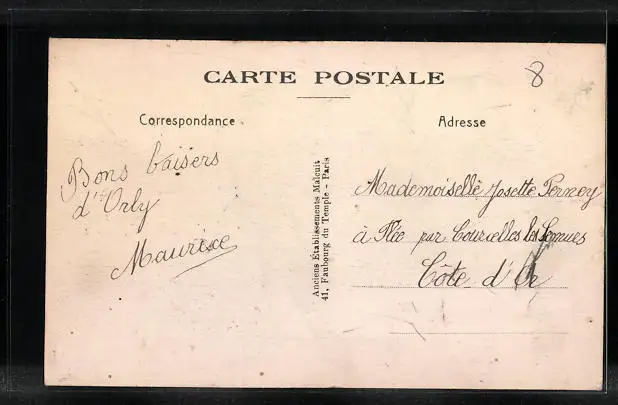 CARTE POSTALE
8
Correspondance
Bons baisers
d'Orly
Maurice
Anciens Établissements Malcuit
41, Faubourg du Temple - Paris
Adresse
Mademoiselle Josette Perney
à Flée par Courcelles les Semurs
Côte d'Or